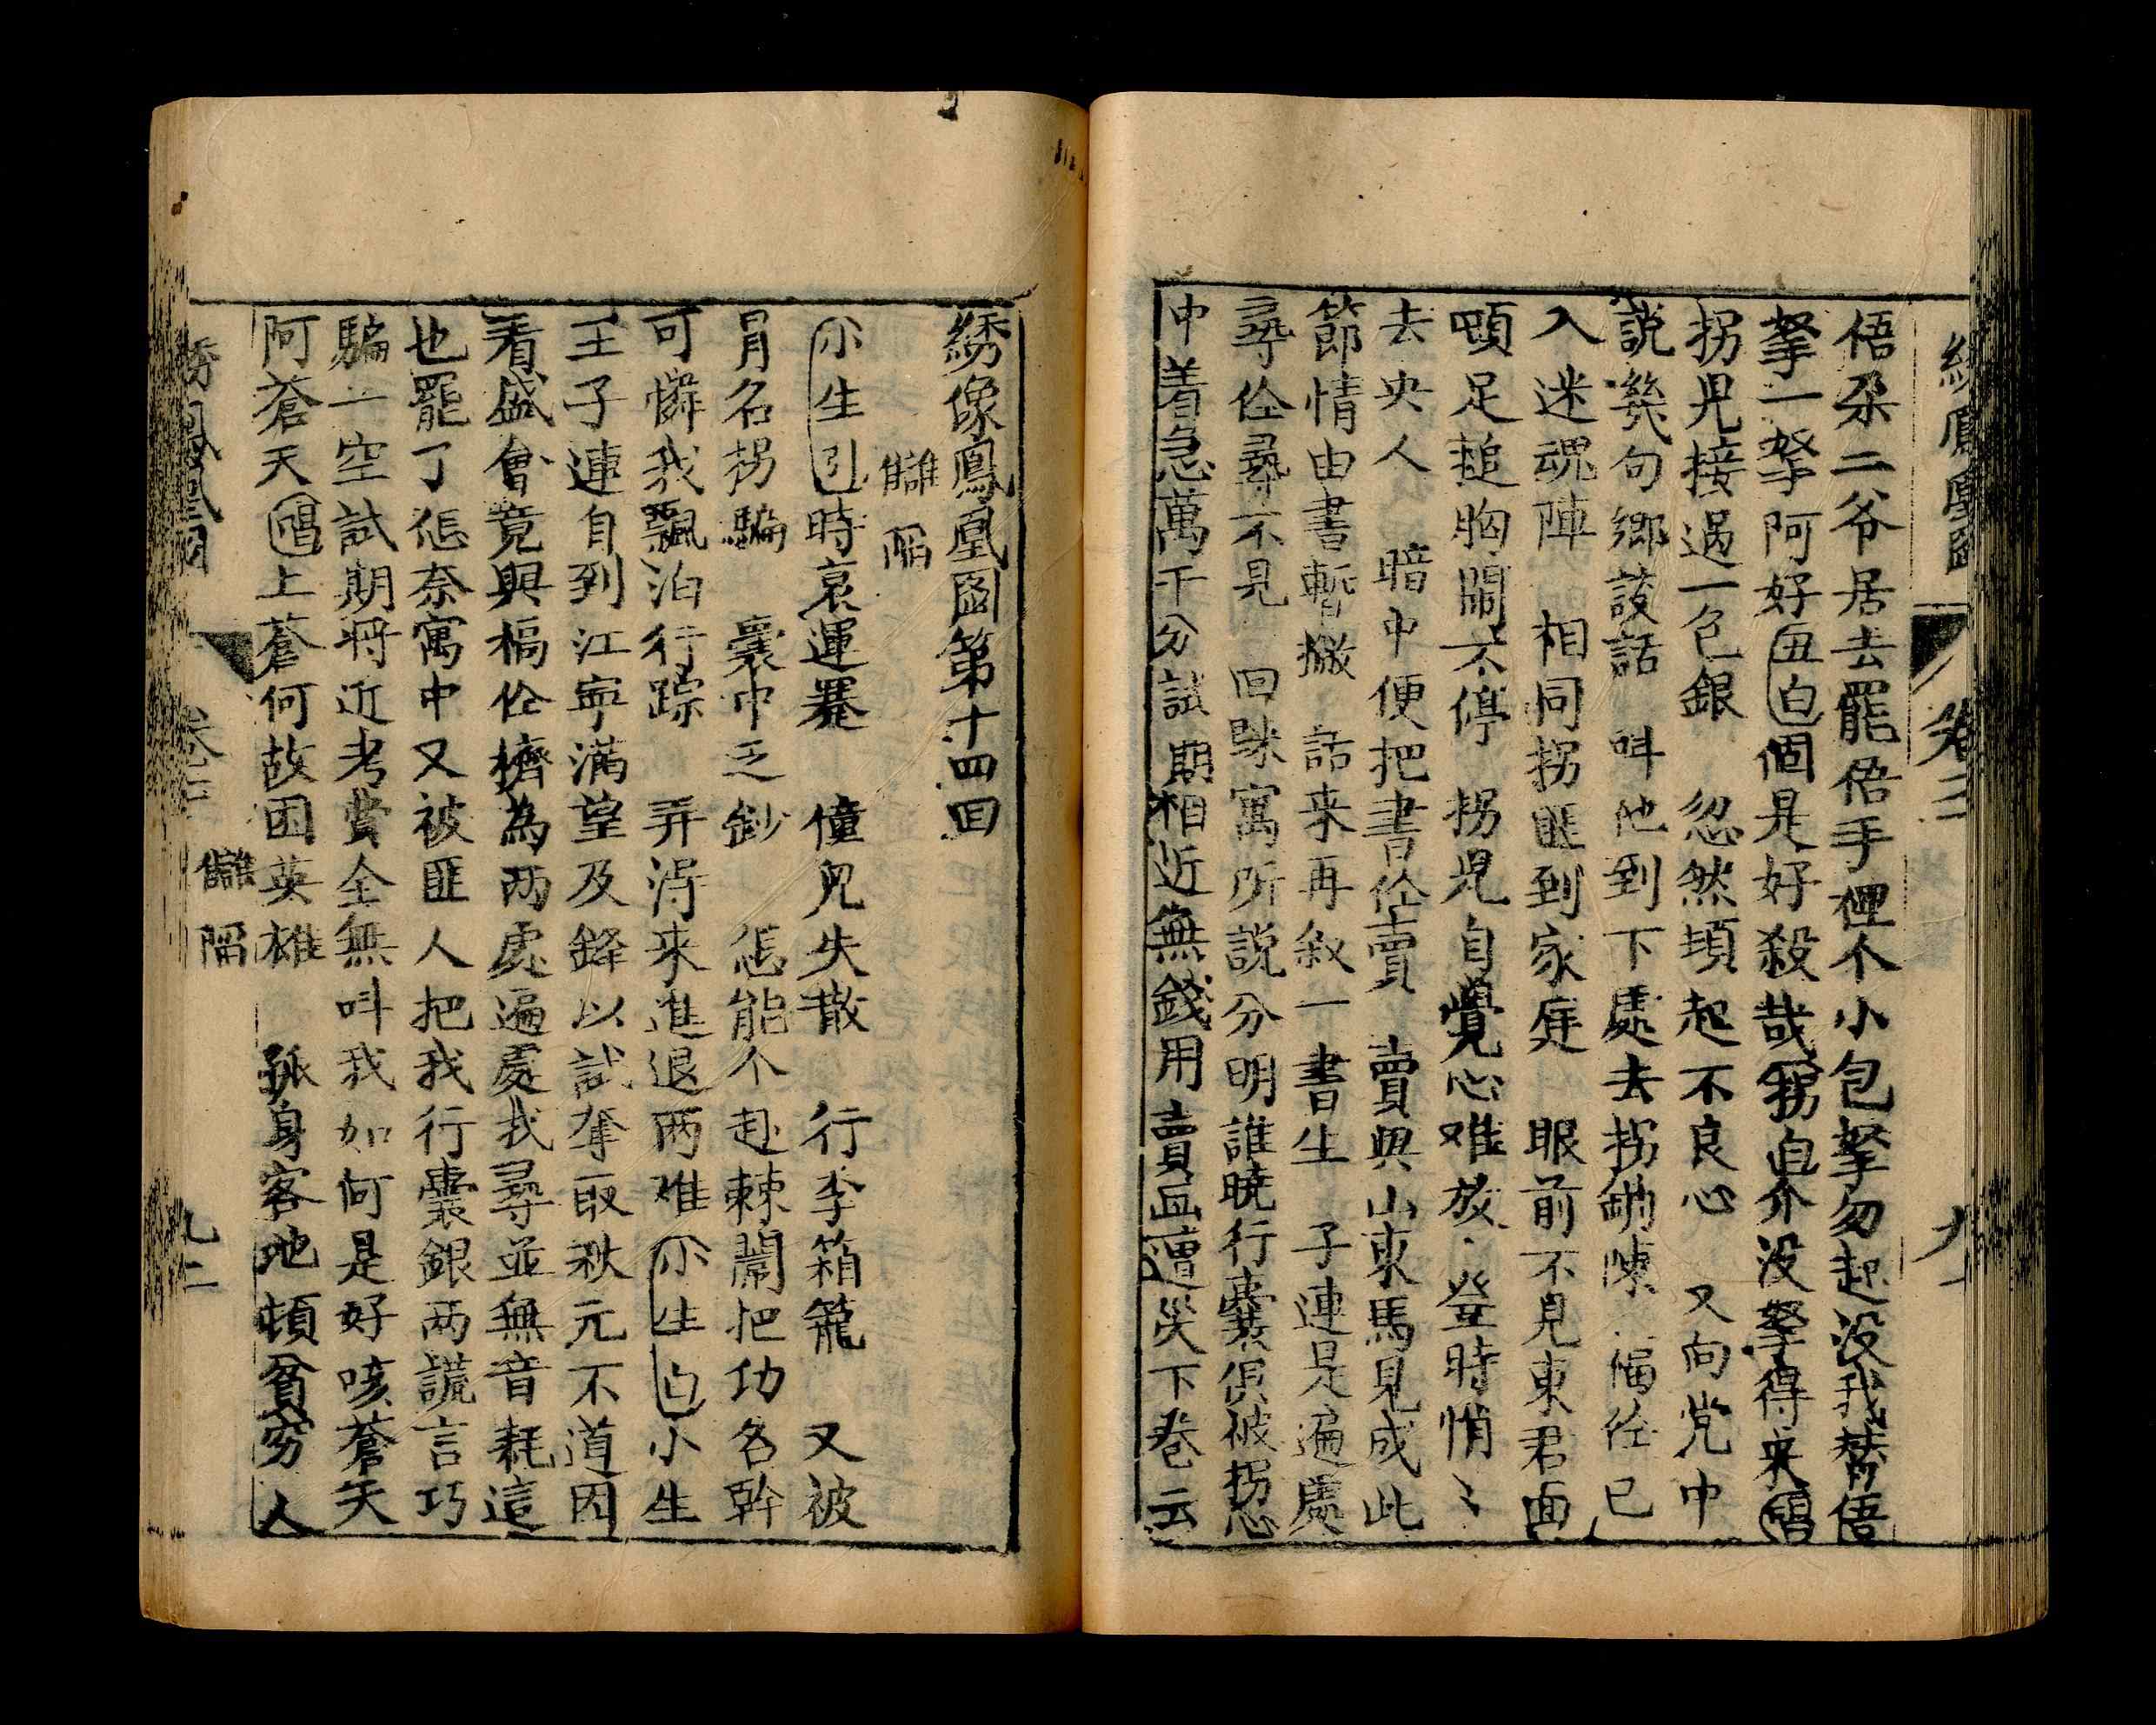 綉鳳凰圖
卷三
九一
俉朶二爷居去罷俉手裡个小包拏勿起没我替俉
拏一拏阿好丑白個是好殺哉拐白介没拏得来唱
拐児接過一包銀　忽然頃起不良心　又向党中
説幾句鄉談話　呌他到下處去拐鋤陳　福佺已
入迷魂陣　相同拐匪到家庭　眼前不見東君面
頓足搥胸鬧不停　拐児自覺心难放　登時悄〻
去央人　暗中便把書佺賣　賣與山東馬見成此
節情由書暫撇　話来再叙一書生　子連是遍處
尋佺尋不見　回歸寓所説分明誰曉行囊俱被拐
中着急萬千分試期相近無錢用賣画遭災下卷云
綉像鳳凰圖第十四回
讎陷
小生引時哀運蹇　僮児失散　行李箱籠　又被
冐名拐騙　囊中乏鈔　怎能个赴棘闈把功名幹
可憐我飄泊行踪　弄淂来進退两难小生白小生
王子連自到江寕滿望及鋒以試奪取秋元不道因
看盛會竟與福佺擠為两處遍處我尋並無音耗這
也罷了怎奈寓中又被匪人把我行囊銀两謊言巧
騙一空試期将近考費全無呌我如何是好咳蒼天
阿蒼天唱上蒼何故困英雄　孤身客地頓貧穷人
綉鳳凰圖
卷三
讎陷
九二